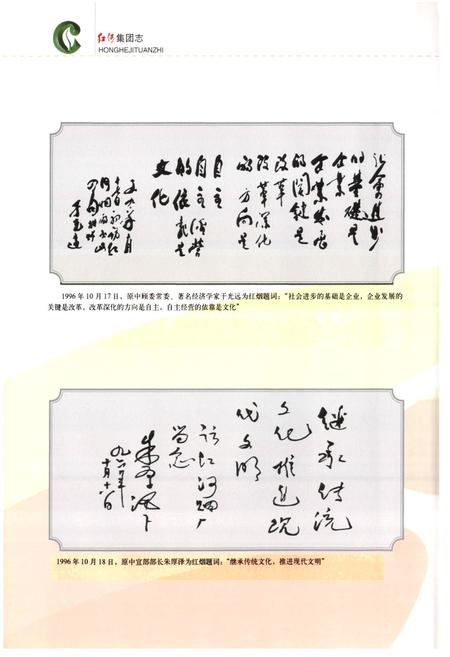 红河集团志
HONGHEJITUANZHI
社会进步
的基础是
企业
企业发展
的关键是
改革
改革深化
的方向是
自主
自主经营
的依靠是
文化
于光远
1996 年 10 月 17 日，原中顾委常委、著名经济学家于光远为红烟题词：“社会进步的基础是企业，企业发展的
关键是改革，改革深化的方向是自主，自主经营的依靠是文化”
继承传统
文化推进现
代文明
访红河烟厂
留念
朱厚泽
九六年
十月十八日
1996 年 10 月 18 日，原中宣部部长朱厚泽为红烟题词：“继承传统文化，推进现代文明”